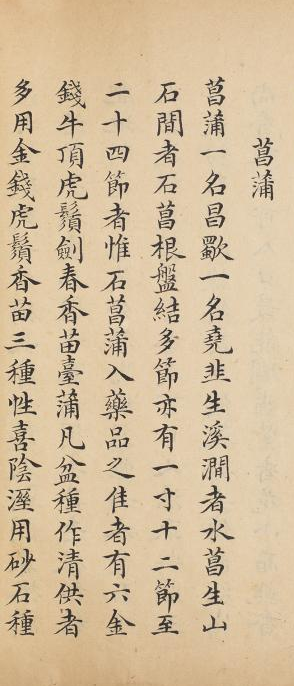 菖蒲
菖蒲一名昌歜一名堯韭生溪澗者水菖生山
石間者石菖根盤結多節亦有一寸十二節至
二十四節者惟石菖蒲入藥品之佳者有六金
錢牛頂虎鬚劍春香苗臺蒲凡盆種作清供者
多用金錢虎鬚香苗三種性喜陰溼用砂石種